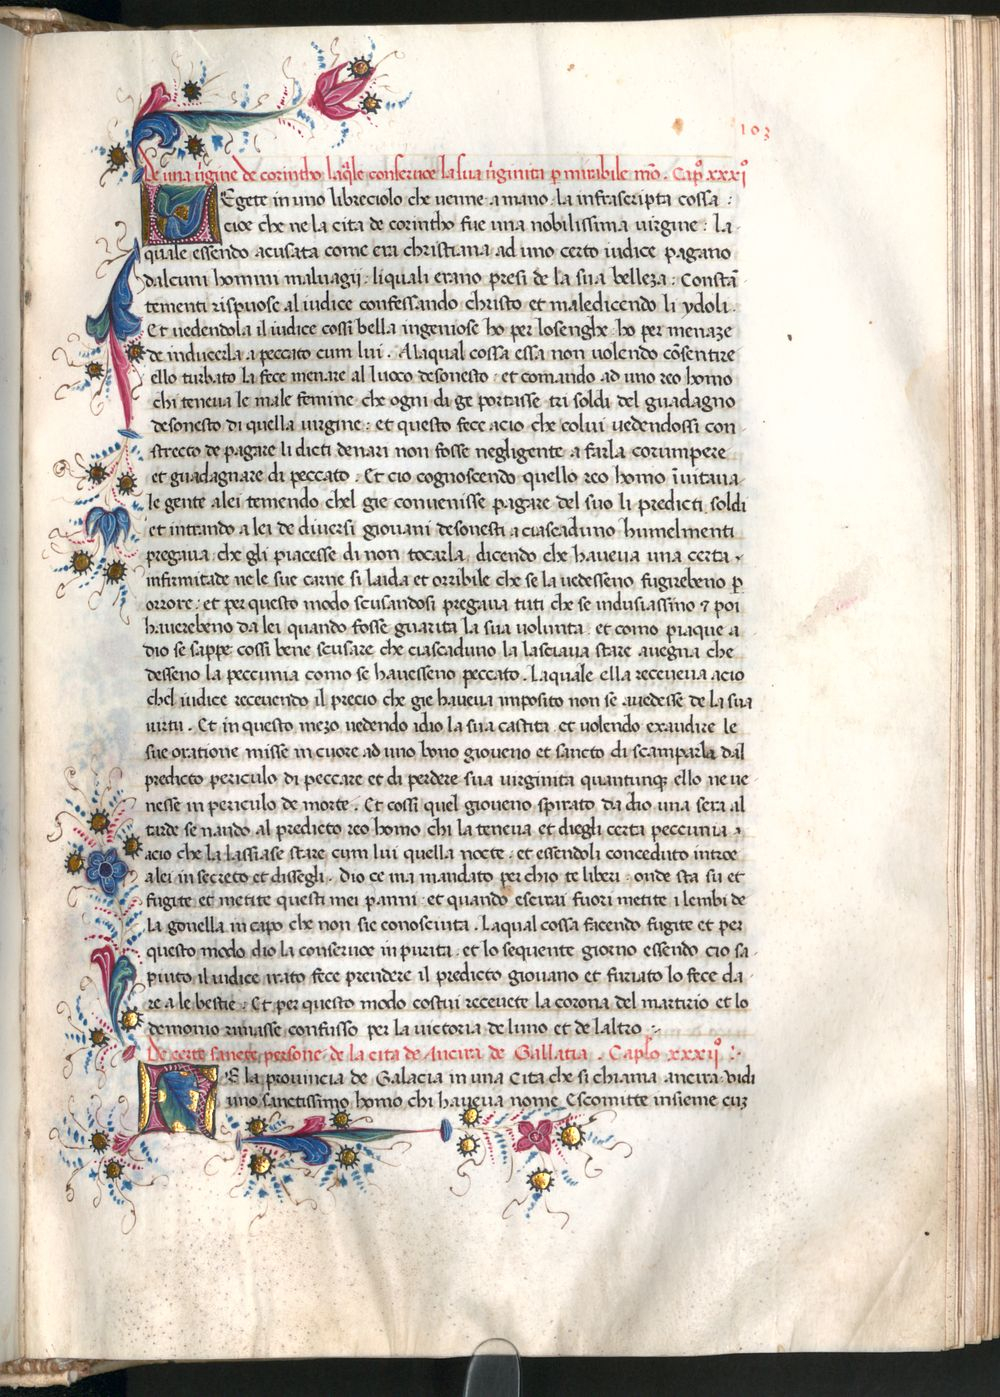 103
De una v̄gine de corintho laq̄le conseruoe la sua v̄ginita ꝑ mirabile mō. Capo xxxi
LEgete in uno libreciolo che uenne a mano la infrascripta cossa :
cioe che ne la cita de corintho fue una nobilissima uirgine : la
quale essendo acusata come era christiana ad uno certo iudice pagano
dalcuni homini maluagij : li quali erano presi de la sua belleza : Constā
tementi rispuose al iudice confessando christo et maledicendo li ydoli .
Et uedendola il iudice cossi bella ingeniose ho per losenghe ho per menaze
de inducerla a peccato cum lui . Alaqual cossa essa non uolendo cōsentire
ello turbato la fece menare al luoco desonesto : et comando ad uno reo homo
chi teneua le male femine che ogni di ge portasse tri soldi del guadagno
desonesto di quella uirgine : et questo fece acio che colui uedendossi con
strecto de pagare li dicti denari non fosse negligente a farla corumpere
et guadagnare di peccato : Et cio cognoscendo quello reo homo īuitaua
le gente alei temendo chel gie conuenisse pagare del suo li predicti soldi
et intrando a lei de diuersi giouani desonesti a ciascaduno humelmenti
pregaua che gli piacesse di non tocarla dicendo che haueua una certa
infirmitade ne le sue carne si laida et orribile che se la uedesseno fugirebeno ꝑ
orrore : et per questo modo scusandosi pregaua tuti che se indusiassino ⁊ poi
hauerebeno da lei quando fosse guarita la sua uolunta et como piaque a
dio se sappe cossi bene scusare che ciascaduno la lasciaua stare auegna che
desseno la peccunia como se hauesseno peccato . Laquale ella receueua acio
chel iudice receuendo il precio che gie haueua imposito non se auedesse de la sua
uirtu . Et in questo mezo uedendo idio la sua castita et uolendo exaudire le
sue oratione misse in cuore ad uno bono gioueno et sancto di scamparla dal
predicto periculo di peccare et di perdere sua uirginita quantunqꝫ ello ne ue
nesse in periculo de morte . Et cossi quel gioueno spirato da dio una sera al
tarde se nando al predicto reo homo chi la teneua et diegli certa peccunia
acio che la lassiase stare cum lui quella nocte : et essendoli conceduto introe
alei in secreto et dissegli . Dio ce ma mandato per chio te liberi : onde sta su et
fugite et metite questi mei panni : et quando eserai fuori metite i lembi de
la gonella in capo che non sie conosciuta . Laqual cossa facendo fugite et per
questo modo dio la conseruoe in purita : et lo sequente giorno essendo cio sa
puuto il iudice irato fece prendere il predicto giouano et furiato lo fece da
re a le bestie : Et per questo modo costui receuete la corona del martirio et lo
demonio rimasse confusso per la uictoria de luno et de laltro :
De certe sancte persone de la cita de Ancira de Gallatia . Caplo xxxii :
NE la prouincia de Galacia in una Cita che si chiama ancira uidi
uno sanctissimo homo chi haueua nome Escomitte insieme cuꝫ